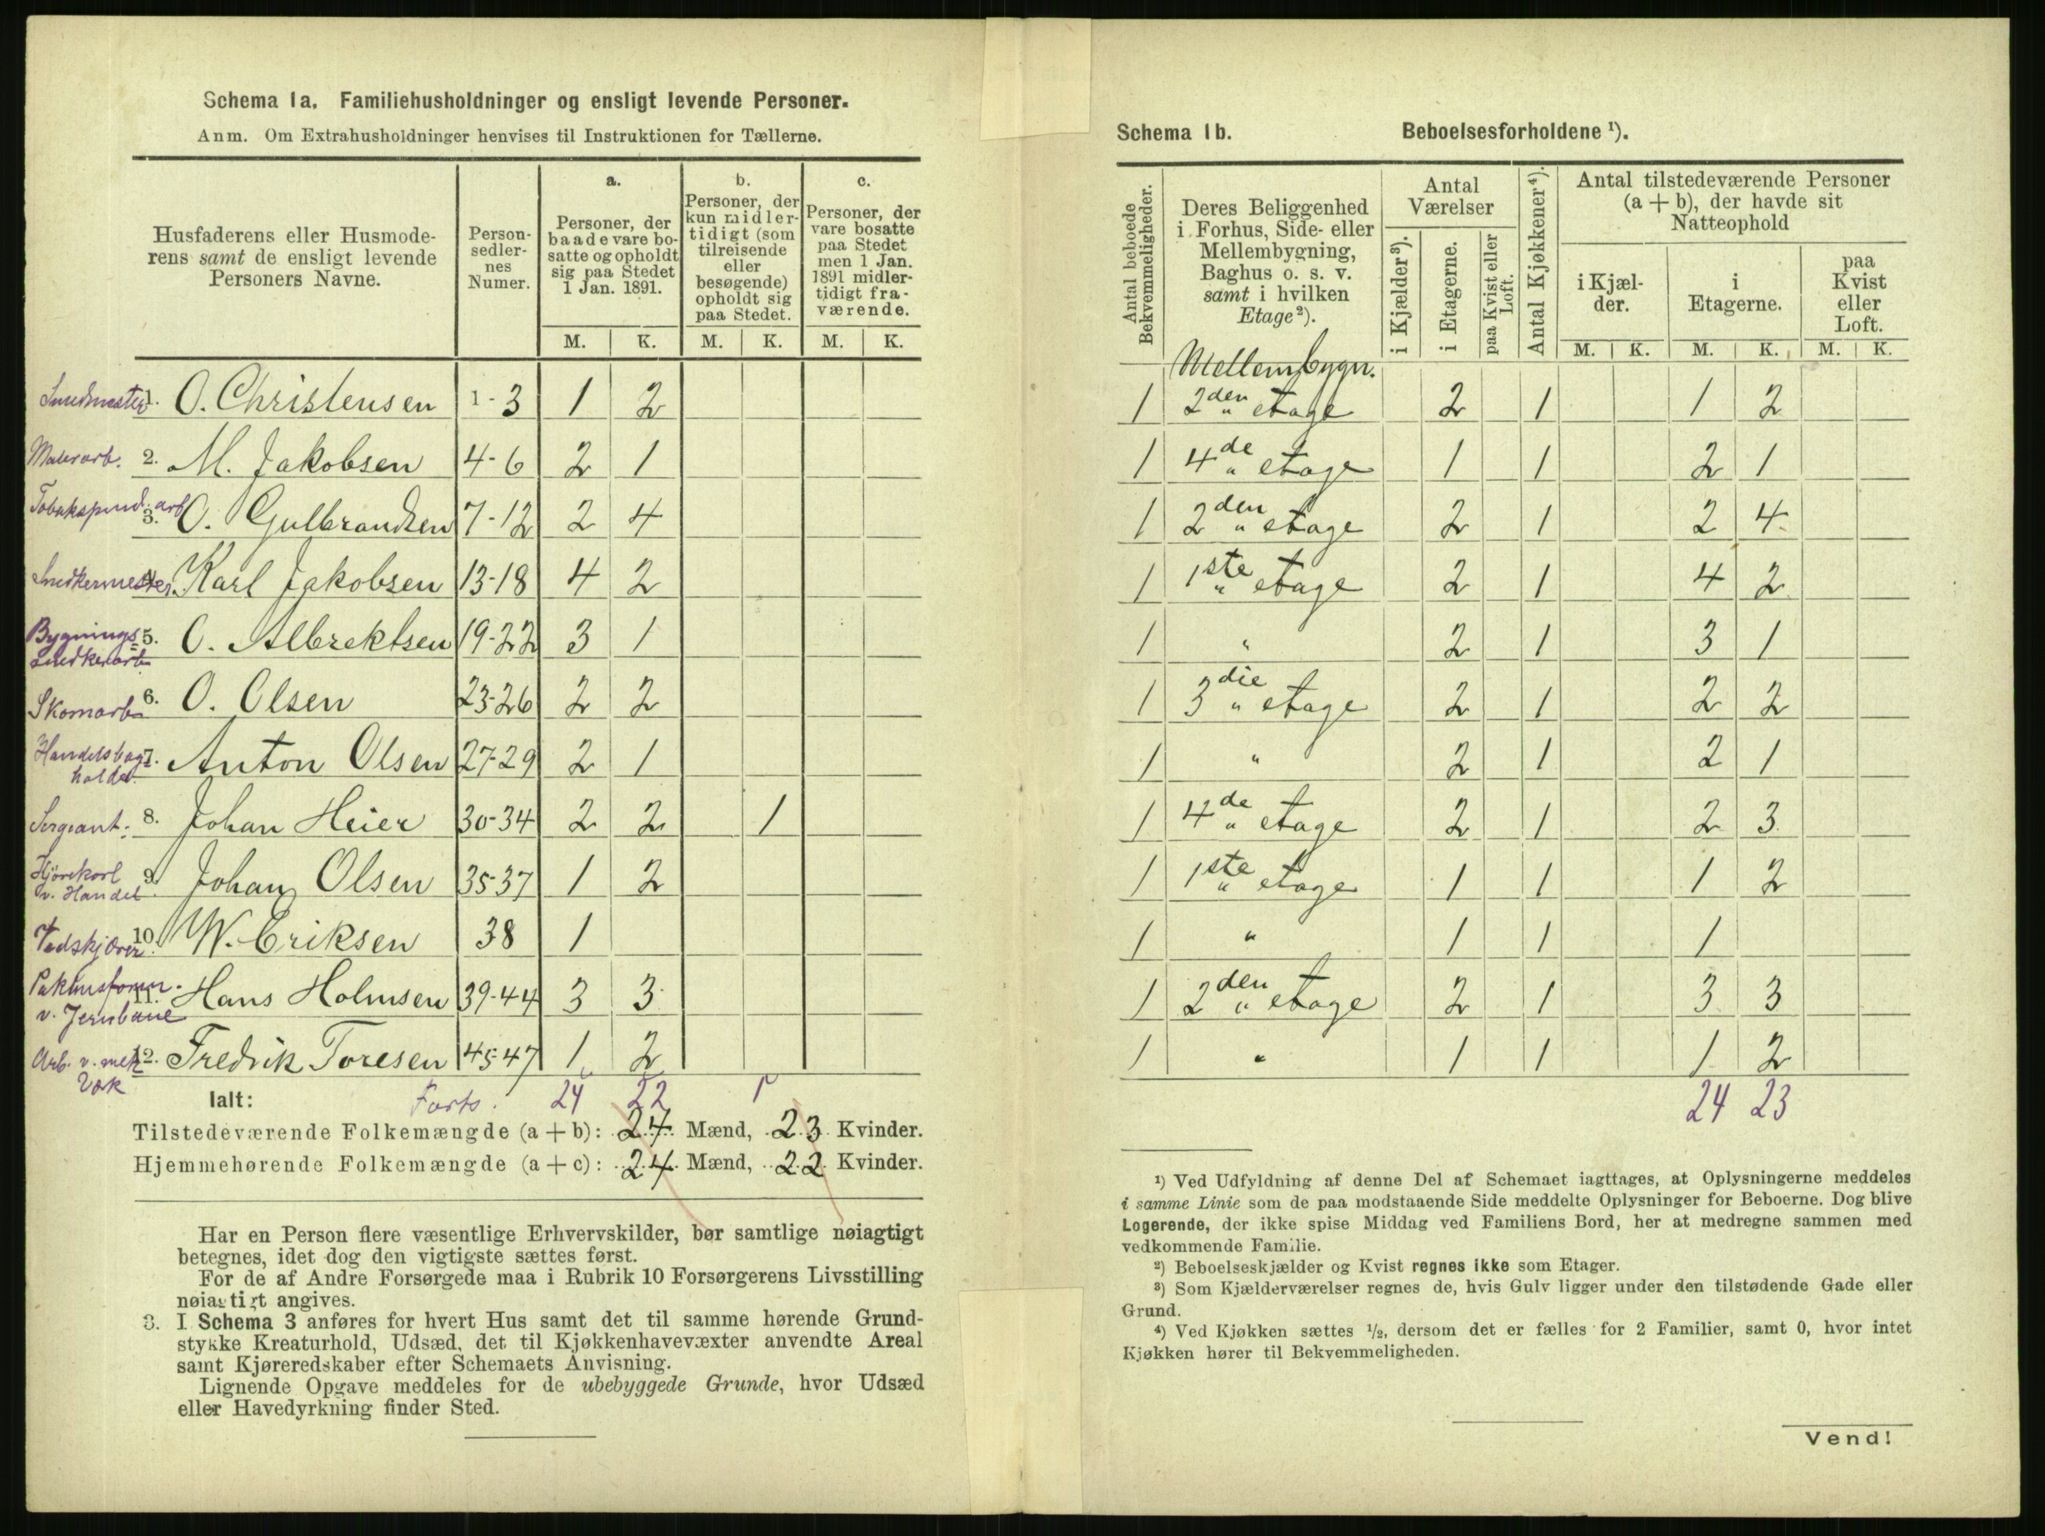 Schema 1a. Familiehusholdninger og ensligt levende Personer.
Anm. Om Extrahusholdninger henvises til Instruktionen for Tællerne.
Husfaderens eller Husmoderens samt de ensligt levende Personers Navne.
Personsedlernes Numer.
a. Personer, der baade vare bosatte og opholdt sig paa Stedet 1 Jan. 1891.
b. Personer, der kun midlertidigt (som tilreisende eller besøgende) opholdt sig paa Stedet.
c. Personer, der vare bosatte paa Stedet men 1 Jan. 1891 midlertidigt fraværende.
M. K. M. K. M. K.
1. O. Christensen 1-3 1 2
Malerarb. 2. M. Jakobsen 4-6 2 1
Tobakspind. arb 3. O. Gulbrandsen 7-12 2 4
Snedkermester 4. Karl Jakobsen 13-18 4 2
Bygnings= snedkerarb 5. O. Albrektsen 19-22 3 1
Skomarb 6. O. Olsen 23-26 2 2
Handelsbog= holder 7. Anton Olsen 27-29 2 1
Sergeant. 8. Johan Heier 30-34 2 2 1
Kjørekarl v. Handel 9. Johan Olsen 35-37 1 2
Vedskjærer 10. W. Eriksen 38 1
Pakhusform. v. Jernbane 11. Hans Holmsen 39-44 3 3
Arb. v. mek Værk 12. Fredrik Toresen 45-47 1 2
Ialt: Forts. 24 22 1
Tilstedeværende Folkemængde (a + b): 24 Mænd, 23 Kvinder.
Hjemmehørende Folkemængde (a + c): 24 Mænd, 22 Kvinder.
Har en Person flere væsentlige Erhvervskilder, bør samtlige nøiagtigt
betegnes, idet dog den vigtigste sættes først.
For de af Andre Forsørgede maa i Rubrik 10 Forsørgerens Livsstilling
nøiagtigt angives.
3. I Schema 3 anføres for hvert Hus samt det til samme hørende Grund-
stykke Kreaturhold, Udsæd, det til Kjøkkenhavevæxter anvendte Areal
samt Kjøreredskaber efter Schemaets Anvisning.
Lignende Opgave meddeles for de ubebyggede Grunde, hvor Udsæd
eller Havedyrkning finder Sted.
Schema 1b. Beboelsesforholdene ¹).
Antal beboede Bekvemmeligheder.
Deres Beliggenhed i Forhus, Side- eller Mellembygning, Baghus o. s. v. samt i hvilken Etage ²).
Antal Værelser
i Kjælder ³).
i Etagerne.
paa Kvist eller Loft.
Antal Kjøkkener ⁴).
Antal tilstedeværende Personer (a + b), der havde sit Natteophold
i Kjælder.
i Etagerne.
paa Kvist eller Loft.
M. K. M. K. M. K.
Mellembygn.
1 2den etage 2 1 1 2
1 4de " etage 1 1 2 1
1 2den " etage 2 1 2 4
1 1ste " etage 2 1 4 2
1 " 2 1 3 1
1 3die " etage 2 1 2 2
1 " 2 1 2 1
1 4de " etage 2 1 2 3
1 1ste " etage 1 1 1 2
1 " 1 1 1
1 2den " etage 2 1 3 3
1 " 1 1 1 2
24 23
¹) Ved Udfyldning af denne Del af Schemaet iagttages, at Oplysningerne meddeles
i samme Linie som de paa modstaaende Side meddelte Oplysninger for Beboerne. Dog blive
Logerende, der ikke spise Middag ved Familiens Bord, her at medregne sammen med
vedkommende Familie.
²) Beboelseskjælder og Kvist regnes ikke som Etager.
³) Som Kjælderværelser regnes de, hvis Gulv ligger under den tilstødende Gade eller
Grund.
⁴) Ved Kjøkken sættes ½, dersom det er fælles for 2 Familier, samt 0, hvor intet
Kjøkken hører til Bekvemmeligheden.
Vend!